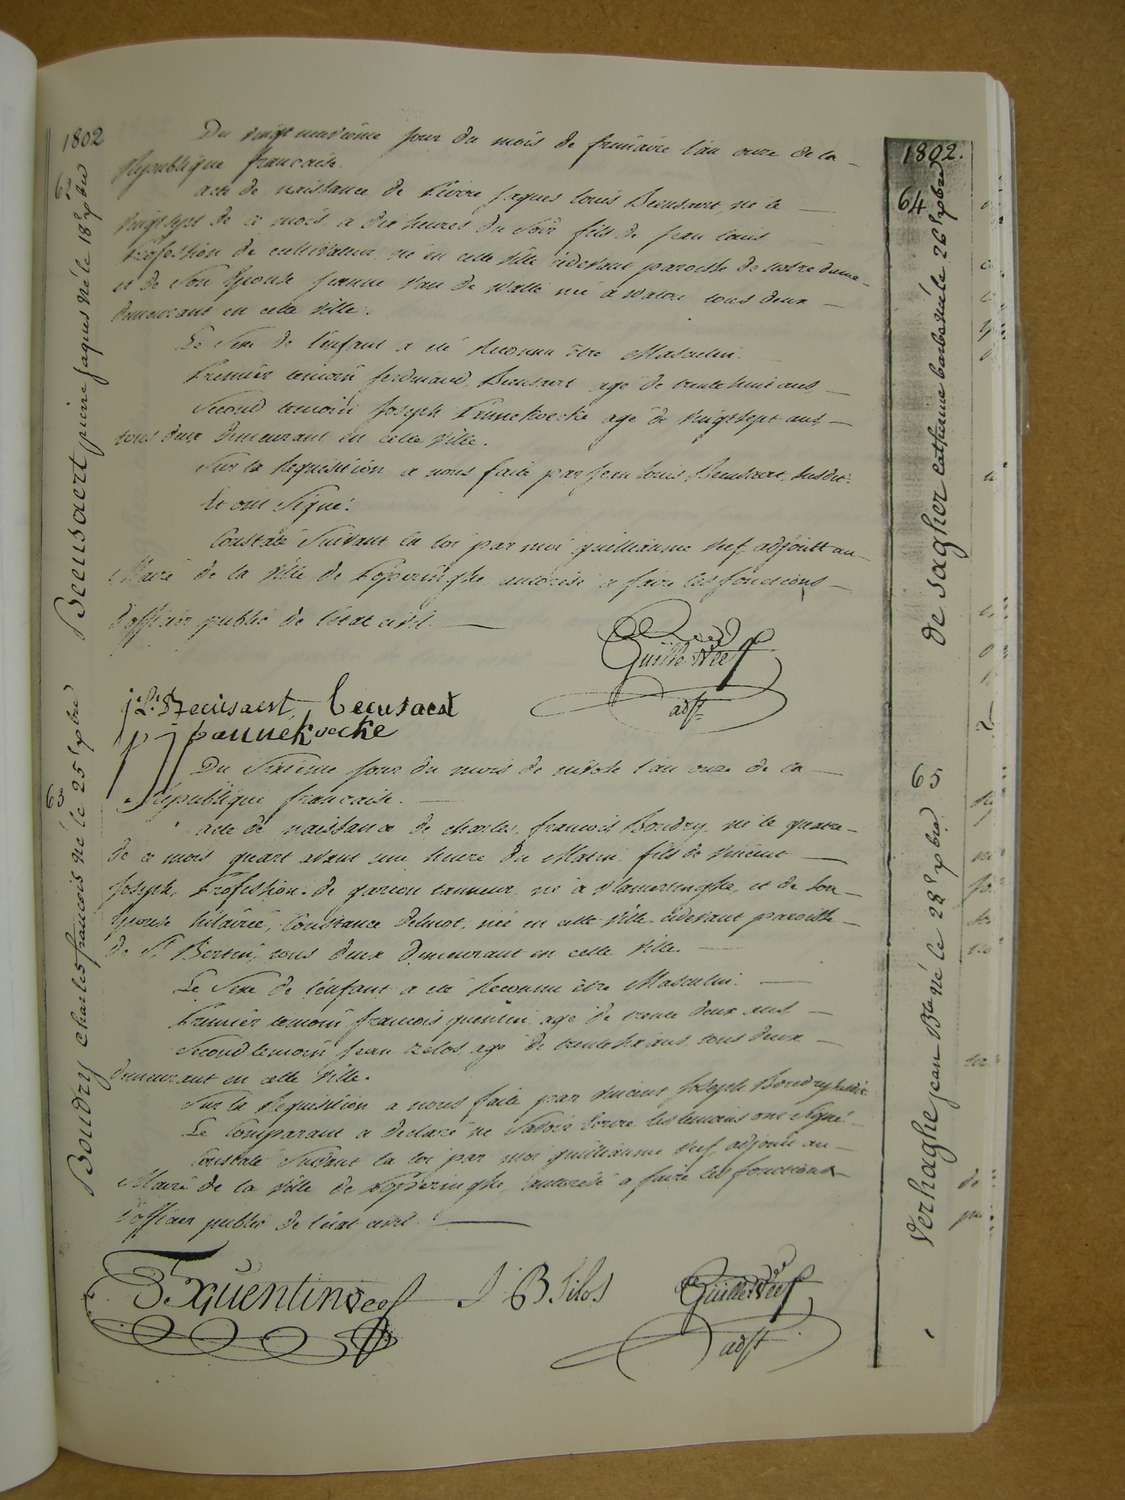 1802
Du vingt neuvième jour du mois de frimaire l'an onze de la
République française.
acte de naissance de Pierre Jaques Louis Beeusaert, né le
vingtsept de ce mois à dix heures du soir fils de Jean Louis
Profession de cultivateur, né en cette ville cidevant paroisse de notre dame
et de son épouse Jeanne Van de Walle née à Watou tous deux
demeurant en cette ville.
Le Sexe de l'enfant a été reconnu être Masculin.
Premier temoin ferdinand Beeusaert agé de trente huit ans
Second temoin Joseph Pannekoecke agé de vingtsept ans
tous deux demeurant en cette ville.
Sur la requisition a nous faite par Jean Louis Beeusaert, susdit.
Et ont Signé.
Constaté Suivant la loi par moi guilliaume Neef adjoint au
Maire de la ville de Poperinghe autorisé a faire les fonctions
d'officier public de l'état civil.
Guille Neef
adjt
j: L: Beeusaert, beeusaert
p j pannekoecke
Beeusaert pierre jaques né le 18 xbre
63
Boudry Charles francois né le 25 xbre
Du Sixième jour du mois de nivôse l'an onze de la
République française.
acte de naissance de charles francois Boudry, né le quatre
de ce mois quart avant une heure du Matin fils de vincent
Joseph, Profession de garçon tanneur, né à Vlamertinghe, et de son
épouse hilairée Constance Delmot, née en cette ville cidevant paroisse
de St Bertin, tous deux demeurant en cette ville.
Le Sexe de l'enfant a été reconnu être Masculin.
Premier temoin francois quentin agé de trente deux ans
Second temoin Jean Zelos agé de trente six ans tous deux
demeurant en cette ville.
Sur la requisition a nous faite par vincent Joseph Boudry susdit
Le Comparant a declaré ne Savoir écrire les temoins ont Signé.
Constaté Suivant la loi par moi guilliaume Neef adjoint au
Maire de la ville de Poperinghe, autorisé a faire les fonctions
d'officier public de l'état civil.
J B Silos
Guille Neef
adjt
1802.
64
de sagher Catherine barbe né le 26 xbre
65
Verhaghe jean Bte né le 28 xbre